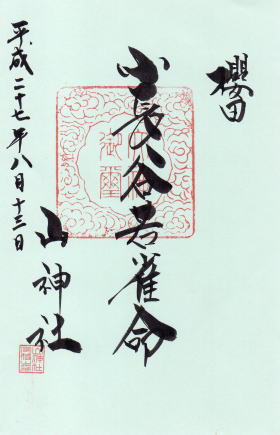 櫻田
小長谷若雀命
山神社
平成二十七年八月十三日